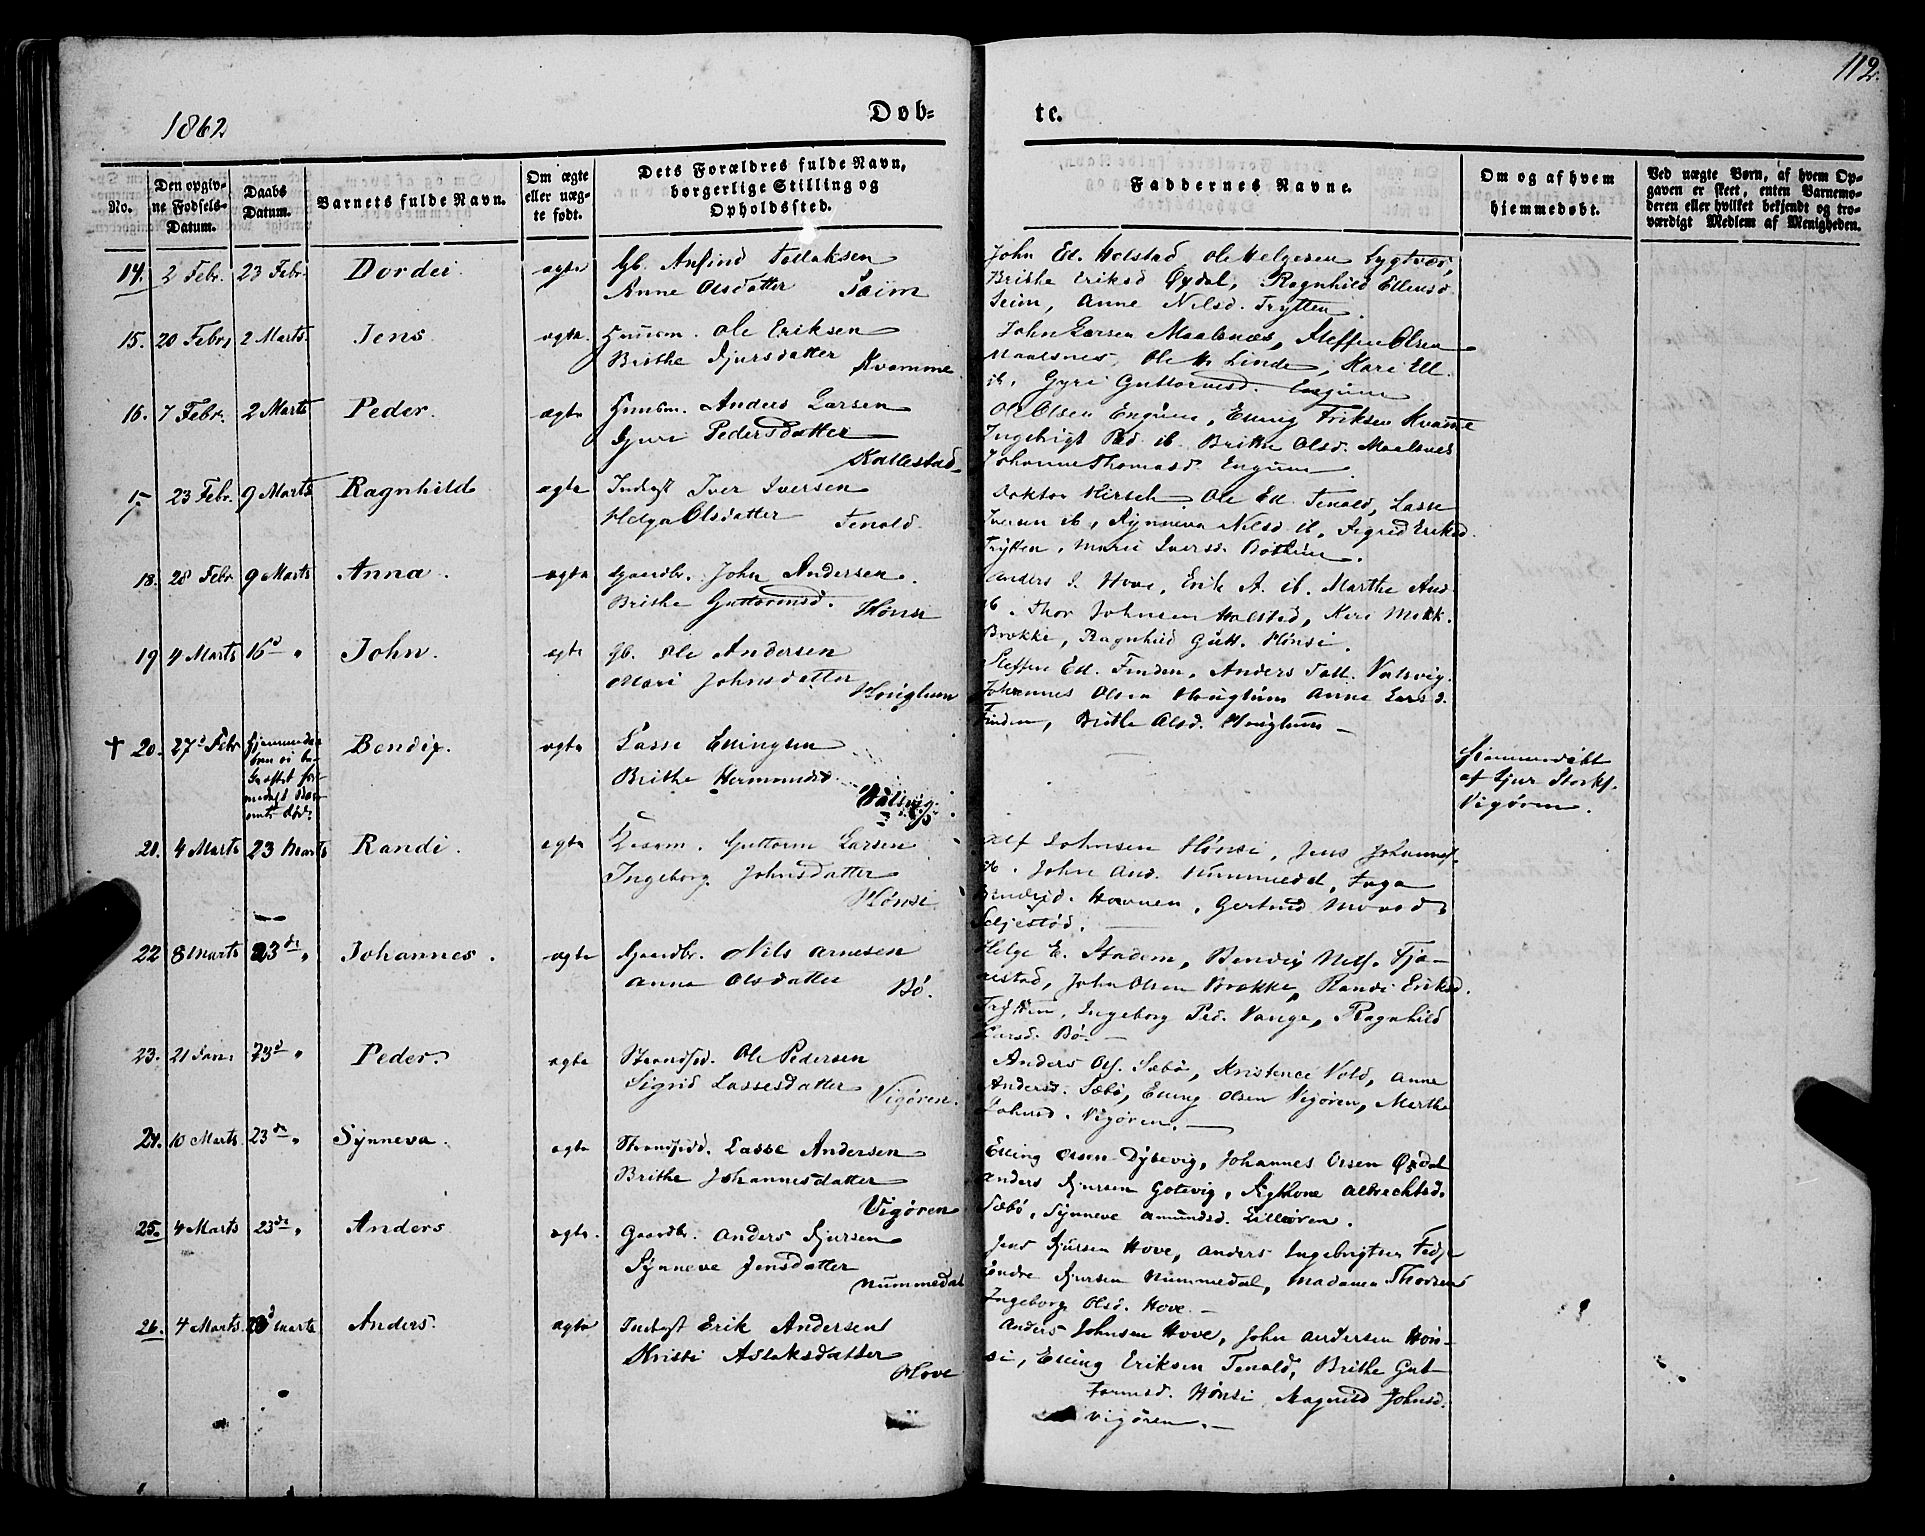 112.
1862
Døb-
te.
No.
Den opgiv-
ne Fødsels-
Datum.
Daabs
Datum.
Barnets fulde Navn.
Om ægte
eller uæg-
te født.
Dets Forældres fulde Navn,
borgerlige Stilling og
Opholdssted.
Faddernes Navne.
Om og af hvem
hjemmedøbt.
Ved uægte Børn, af hvem Op-
gaven er skeet, enten Barnemo-
deren eller hvilket bekjendt og tro-
værdigt Medlem af Menigheden.
14. 2 Febr. 23 Febr. Dordei. ægte Gb. Anfind Tollaksen
Anne Olsdatter Seim
John Ell. Holstad, Ole Helgesen
Brithe Eriksd Øxdal, Ragnhild Ellensd
Seim, Anne Nilsd. Trytten.
15. 20 Febr. 2 Marts. Jens ægte Huusm. Ole Eriksen
Brithe Sjursdatter Kvamme
John Larsen Maalsnæs, Steffen Olsen
Maalsnes, Ole Linde, Kari Ell.
ib. Gyri Guttormsd. Engum
16. 7 Febr. 2 Marts Peder. ægte Huusm. Anders Larsen
Pedersdatter
Kallestad
Ole Olsen Engum, Elling Eriksen Kvamme
Ingebrigt Ped. ib. Brithe Olsd. Maalsnes
Johanne Thomasd. Engum
17 23 Febr. 9 Marts Ragnhild ægte Inderst Iver Iversen
Helga Olsdatter Tenold.
Doktor Hirsch Ole Ell. Tenold, Lasse
Iversen ib, Synneva Nilsd ib, Sigrid Eriksd.
Trytten, Mari Iversd.
18. 28 Febr 9 Marts Anna. ægte Gaardbr. John Andersen.
Brithe Guttormsd. Hønsi
Anders J. Hove, Erik A. ib. Marthe And
ib. Thor Johnsen Holstad, Kari
Brekke, Ragnhild Gutt. Hønsi.
19 4 Marts 16d " John. ægte Gb. Ole Andersen
Mari Johnsdatter Houglum
Steffen Ell. Finden, Anders Valsvig
Johannes Olsen Houglum Anne Larsd.
Finden, Brithe Olsd. Houglum
† 20. 27d Febr Bendix. ægte Lasse Ellingsen
Brithe Hermundsd.
Valsvig
Hjemmedøbt
af Sjur
Vigøren.
21. 4 Marts 23 Marts Randi. ægte Guttorm Larsen
Ingeborg Johnsdatter
Hønsi
Johnsen Hønsi, Jens Johannes
ib. John And. Nummedal,
Hovnen, Gertrud
22 8 Marts 23de " Johannes. ægte Gaardbr. Nils Arnesen
Anna Olsdatter Bø.
Helge E. Stadem, Bendix Nils.
John Olsen Brekke, Randi Eriksd.
Trytten, Ingeborg Ped. Vange, Ragnhild
Larsd. Bø.
23. 21 Jan. 23d " Peder. ægte Strandsid. Ole Pedersen
Sigrid Lassesdatter Vigøren.
Anders Ols. Sæbø, Kristence Vold, Anne
Andersd. Sæbø, Elling Olsen Vigøren, Marthe
Johnsd. Vigøren.
24. 10 Marts. 23de " Synneva. ægte Strandsidd. Lasse Andersen
Brithe Johannesdatter
Vigøren
Elling Olsen Dybevig, Johannes Olsen Øxdal
Anders Sjursen Gotevig, Albrechtsd.
Sæbø, Synneve Amundsd. Lilleøren.
25. 4 Marts 23de " Anders ægte. Gaardbr. Anders Sjursen
Synneve Jensdatter
Nummedal
Jens Sjursen Hove, Anders Ingebrigtsen
Endre Sjursen Nummedal, Madame
Ingeborg Olsd. Hove.
26. 4 Marts. 23d Marts Anders. ægte Inderst Erik Andersen
Kristi Aslaksdatter
Hove
Anders Johnsen Hove, John Andersen Høn-
si, Elling Eriksen Tenold, Brithe Gut-
tormsd. Hønsi, Magnild Johnsd.
Vigøren.